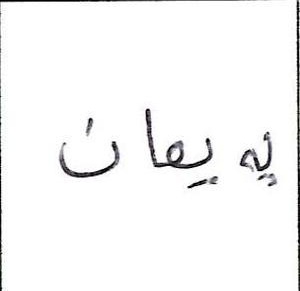 پەیمان